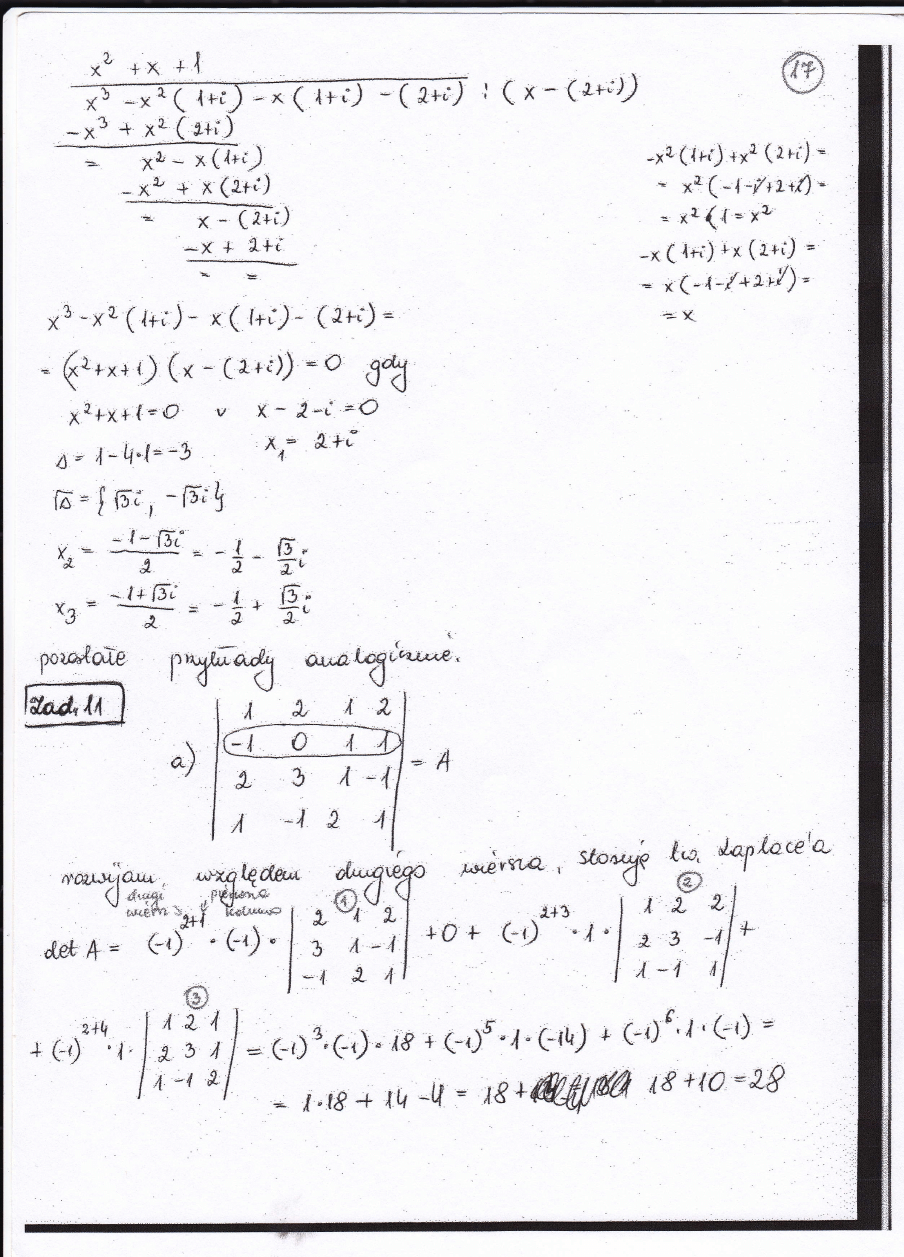 17
x² + x + 1
x³ - x²(1+i) - x(1+i) - (2+i) : (x - (2+i))
-x³ + x²(2+i)
= x² - x(1+i)
-x² + x(2+i)
= x - (2+i)
-x + 2+i
= =
-x²(1+i) + x²(2+i) =
= x²(-1-i+2+i) =
= x²(1 = x²
-x(1+i) + x(2+i) =
= x(-1-i+2+i) =
= x
x³ - x²(1+i) - x(1+i) - (2+i) =
= (x²+x+1)(x - (2+i)) = 0 gdy
x²+x+1=0 v x - 2 - i = 0
Δ = 1 - 4·1 = -3 x₁ = 2+i
√Δ = {√3i, -√3i}
x₂ = (-1-√3i)/2 = -1/2 - √3/2 i
x₃ = (-1+√3i)/2 = -1/2 + √3/2 i
pozostałe przykłady analogicznie.
Zad. 11
a) | 1 2 1 2 |
| -1 0 1 1 | = A
| 2 3 1 -1 |
| 1 -1 2 1 |
rozwijam względem drugiego wiersza, stosuję tw. Laplace'a
drugi wiersz pierwsza kolumna
det A = (-1)²⁺¹ · (-1) · | 2 1 2 | + 0 + (-1)²⁺³ · 1 · | 1 2 2 | +
① | 3 1 -1 | ② | 2 3 -1 |
| -1 2 1 | | 1 -1 1 |
+ (-1)²⁺⁴ · 1 · | 1 2 1 | = (-1)³·(-1)·18 + (-1)⁵·1·(-14) + (-1)⁶·1·(-1) =
③ | 2 3 1 |
| 1 -1 2 |
= 1·18 + 14 - 4 = 18 + 18 + 10 = 28